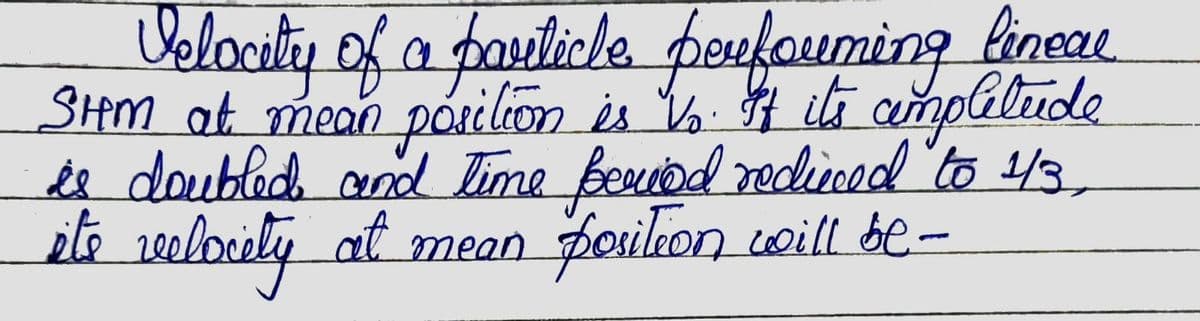 Velocity of a particle performing linear
SHM at mean position is V₀. If its amplitude
is doubled and time period reduced to 1/3,
its velocity at mean position will be -